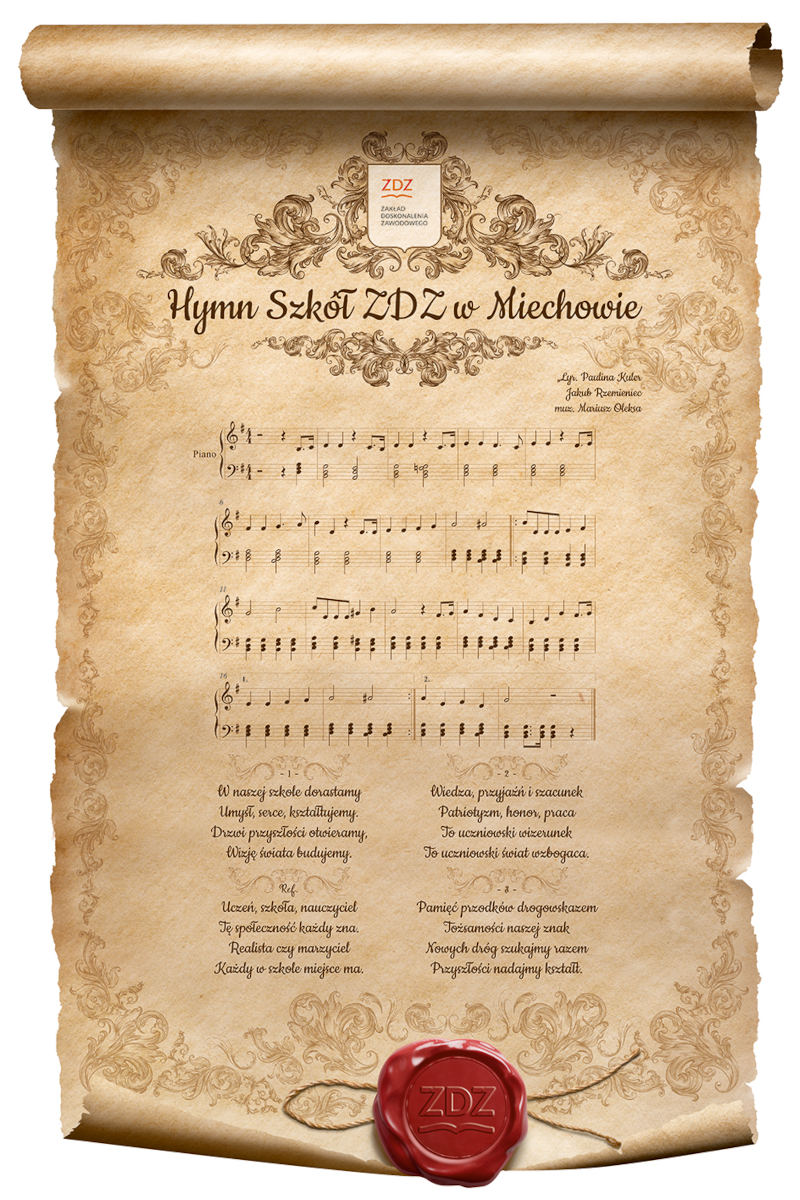 ZDZ
ZAKŁAD
DOSKONALENIA
ZAWODOWEGO
Hymn Szkół ZDZ w Miechowie
Lyr. Paulina Kuler
Jakub Rzemieniec
muz. Mariusz Oleksa
Piano
6
11
16
1.
2.
- 1 -
W naszej szkole dorastamy
Umysł, serce, kształtujemy.
Drzwi przyszłości otwieramy,
Wizję świata budujemy.
Ref.
Uczeń, szkoła, nauczyciel
Tę społeczność każdy zna.
Realista czy marzyciel
Każdy w szkole miejsce ma.
- 2 -
Wiedza, przyjaźń i szacunek
Patriotyzm, honor, praca
To uczniowski wizerunek
To uczniowski świat wzbogaca.
- 3 -
Pamięć przodków drogowskazem
Tożsamości naszej znak
Nowych dróg szukajmy razem
Przyszłości nadajmy kształt.
ZDZ